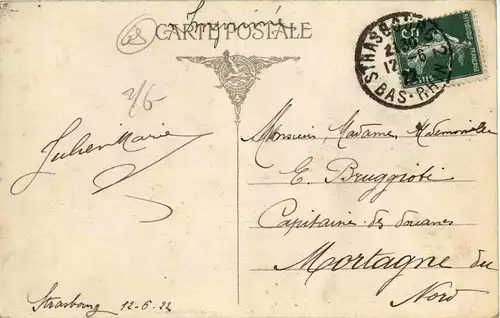 Imprimé
CARTE POSTALE
68
2/6
STRASBOURG
12 - 6
22
BAS-RHIN
POSTES
Julien Marie
Monsieur, Madame, Mademoiselle
E. Bruggioti
Capitaine des douanes
Mortagne du
Nord
Strasbourg 12-6-22